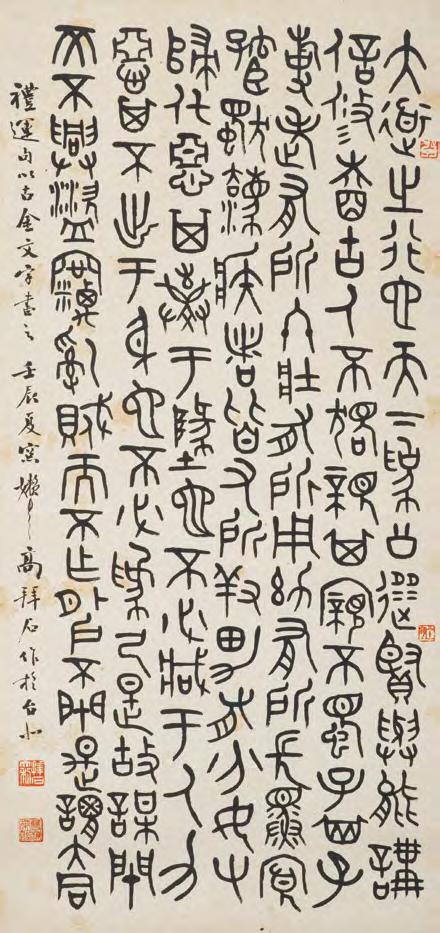 大道之行也天下為公選賢與能講
信修睦古人不獨親其親不獨子其子
使老有所終壯有所用幼有所長鰥寡
孤獨廢疾者皆有所養男有分女有
歸貨惡其棄于地也不必藏于力
惡其不出于身也不必為己是故謀閉
而不興盜竊亂賊而不作外戶不閉是謂大同
禮運句以古金文字書之 壬辰夏 高拜石作於台北